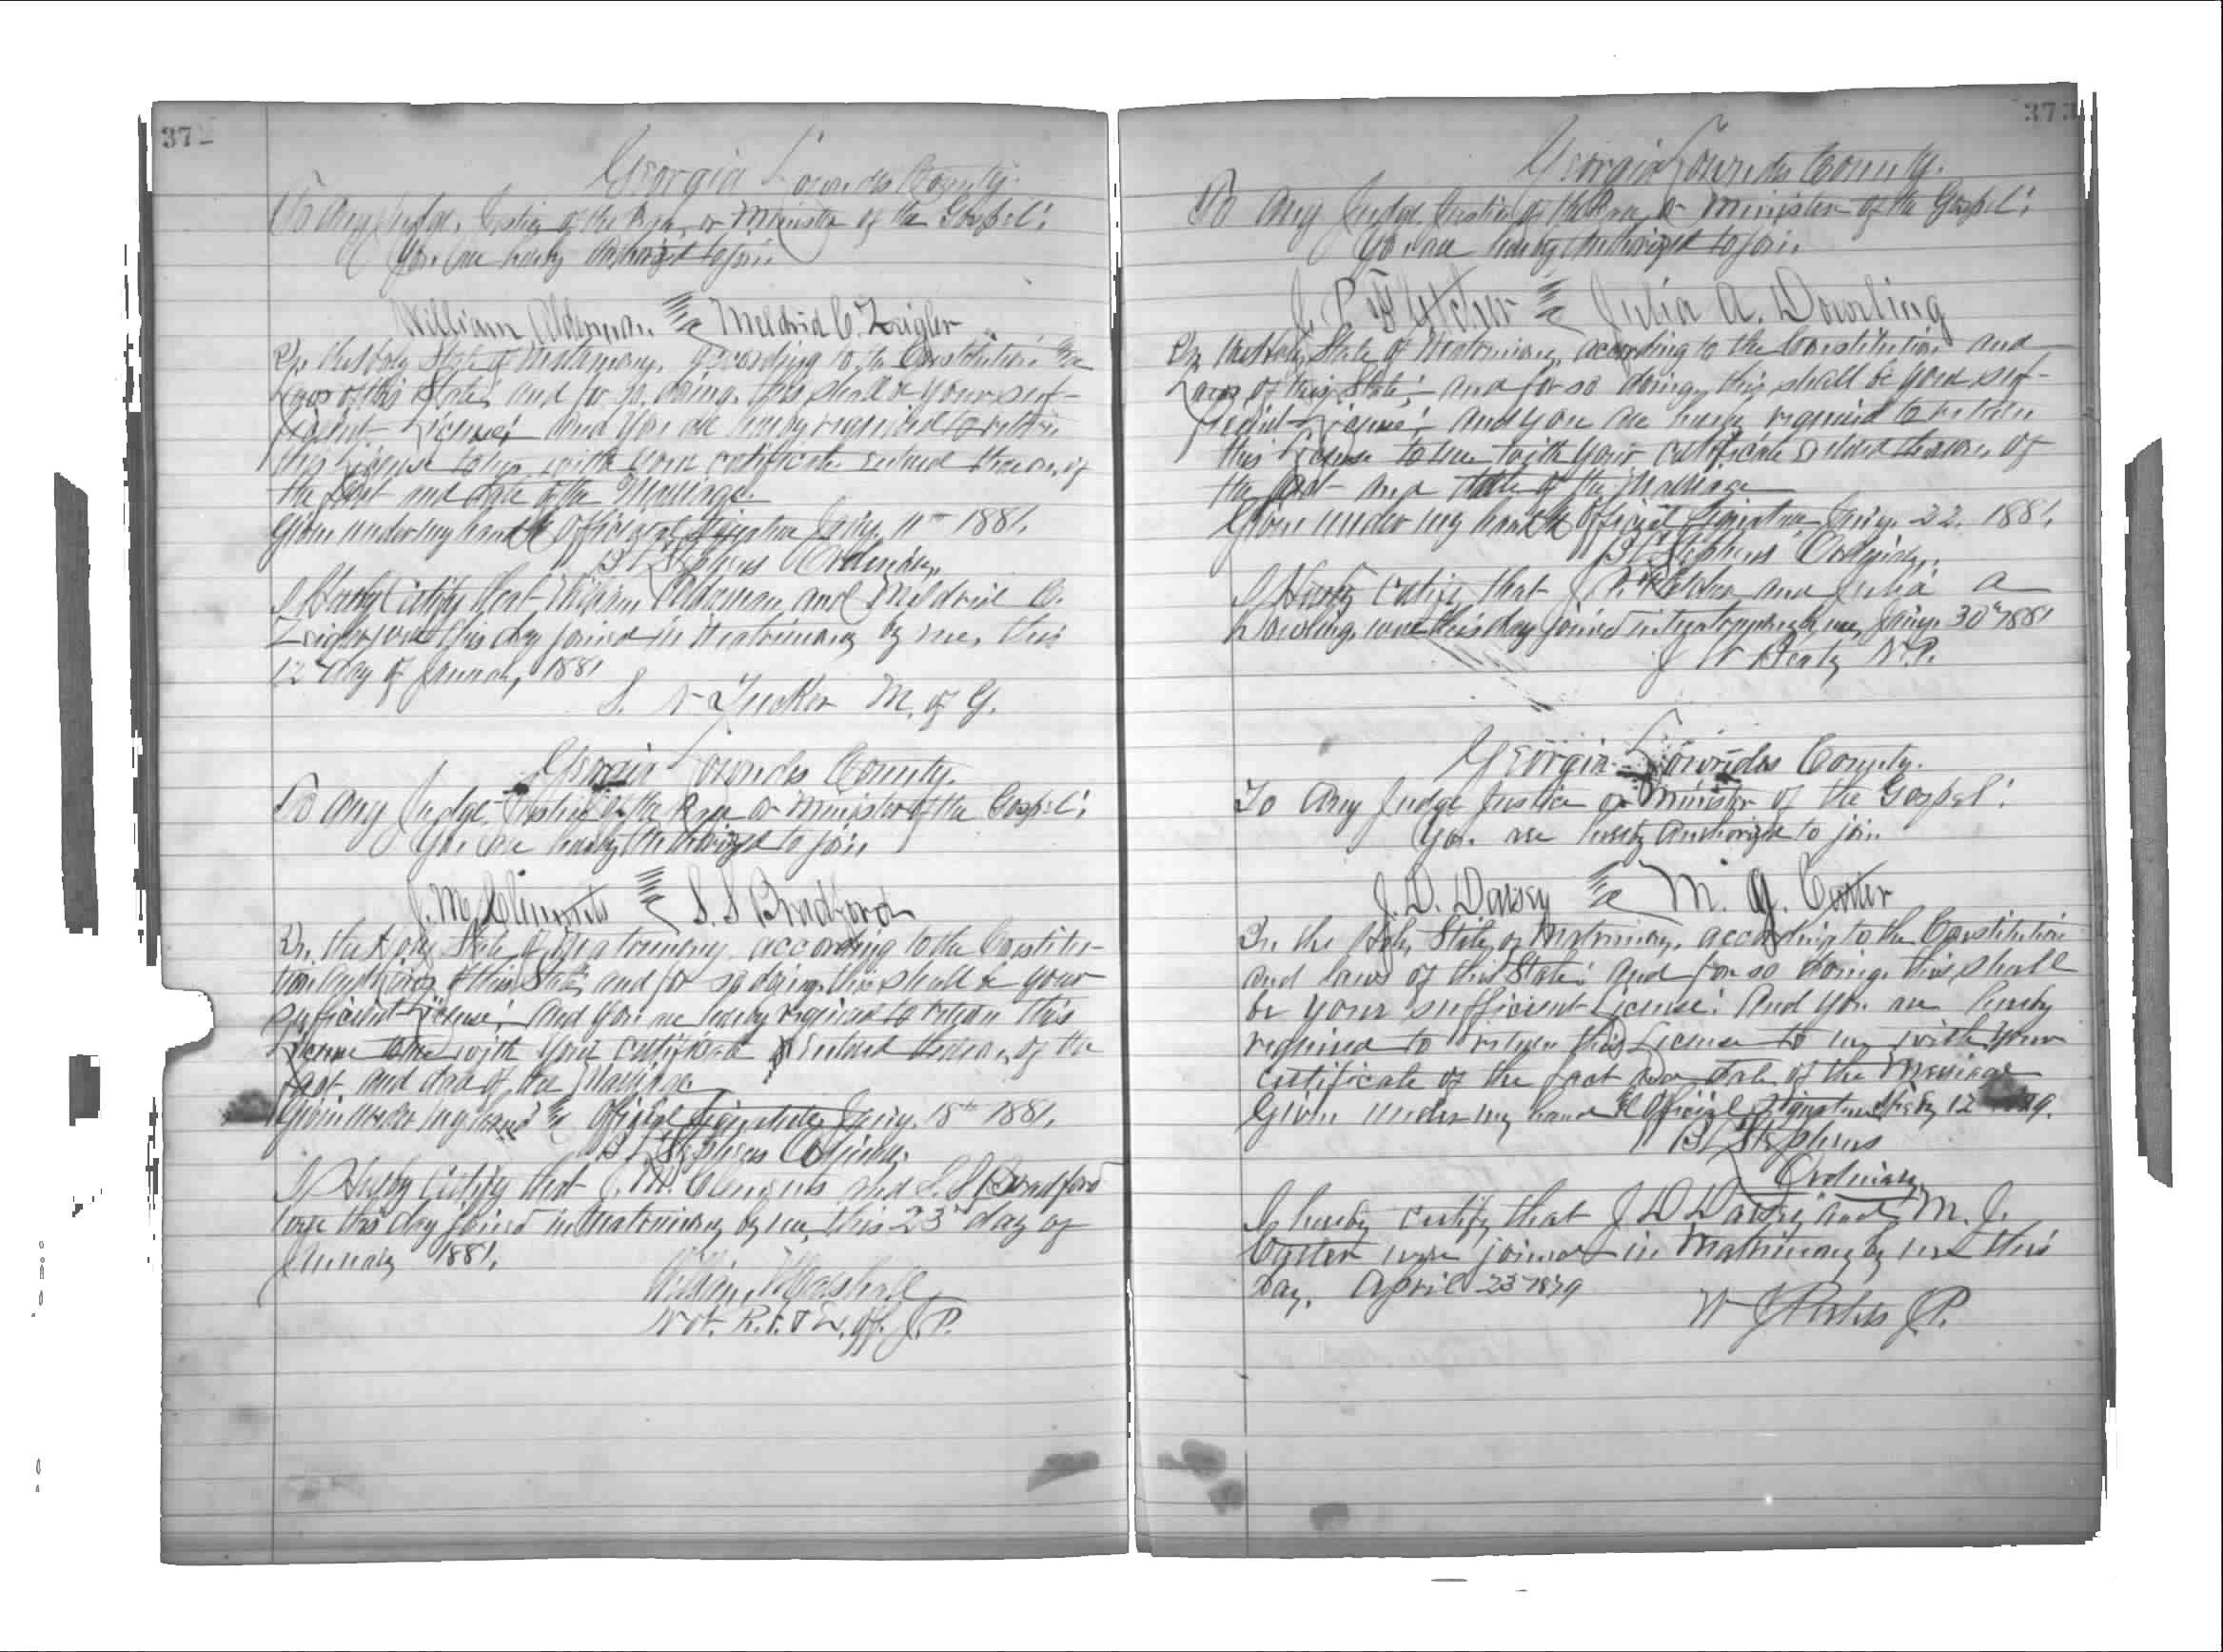 37
Georgia Lowndes County.
To any Judge, Justice of the Peace, or Minister of the Gospel:
You are hereby authorized to join
William Alderman and Meldrid C. Zeigler
In the holy State of Matrimony, according to the Constitution and
Laws of this State; and for so doing, this shall be your suf-
ficient License; and you are hereby required to return
this license to me, with your certificate entered thereon, of
the fact and date of the Marriage.
Given under my hand & Official Signature Jany. 11th 1881.
B L Stephens Ordinary.
I Hereby Certify that William Alderman and Meldrid C.
Zeigler were this day joined in Matrimony by me, this
12th day of January, 1881
S. Tucker M. of G.
Georgia Lowndes County.
To any Judge Justice of the Peace or Minister of the Gospel:
You are hereby authorized to join
J. M. Clements and S. S Bradford
In the Holy State of Matrimony according to the Constitu-
tion and Laws of this State; and for so doing this shall be your
sufficient License; and you are hereby required to return this
License to me with your certificate entered thereon, of the
fact and date of the Marriage.
Given under my hand & Official Signature Jany. 18th 1881.
B L Stephens Ordinary.
I Hereby Certify that J. M. Clements and S. S Bradford
were this day joined in Matrimony by me, this 23d day of
January 1881.
William Marshall
Not. P. & Ex. off. J. P.
373
Georgia Lowndes County.
To any Judge, Justice of the Peace, or Minister of the Gospel:
You are hereby authorized to join
J. P. Fletcher and Julia A. Dowling
In the Holy State of Matrimony, according to the Constitution and
Laws of this State; and for so doing, this shall be your suf-
ficient License; and you are hereby required to return
this License to me with your certificate entered thereon, of
the fact and date of the Marriage
Given under my hand & Official Signature Jany. 22. 1881.
B L Stephens Ordinary.
I Hereby certify that J. P. Fletcher and Julia A
Dowling, were this day joined in Matrimony by me, Jany. 30th 1881
J N. P.
Georgia Lowndes County.
To Any Judge Justice or Minister of the Gospel:
You are hereby authorized to join
J. D. Dawsey and M. J. Carter
In the Holy State of Matrimony, according to the Constitution
and laws of this State: and for so doing, this shall
be your sufficient License: And you are hereby
required to return this License to me with your
certificate of the fact and date of the Marriage
Given under my hand & Official Signature 12
B L Stephens
Ordinary
I hereby certify that J D Dawsey and M. J.
Carter were joined in Matrimony by me this
Day. April 23d 1879
W J J. P.